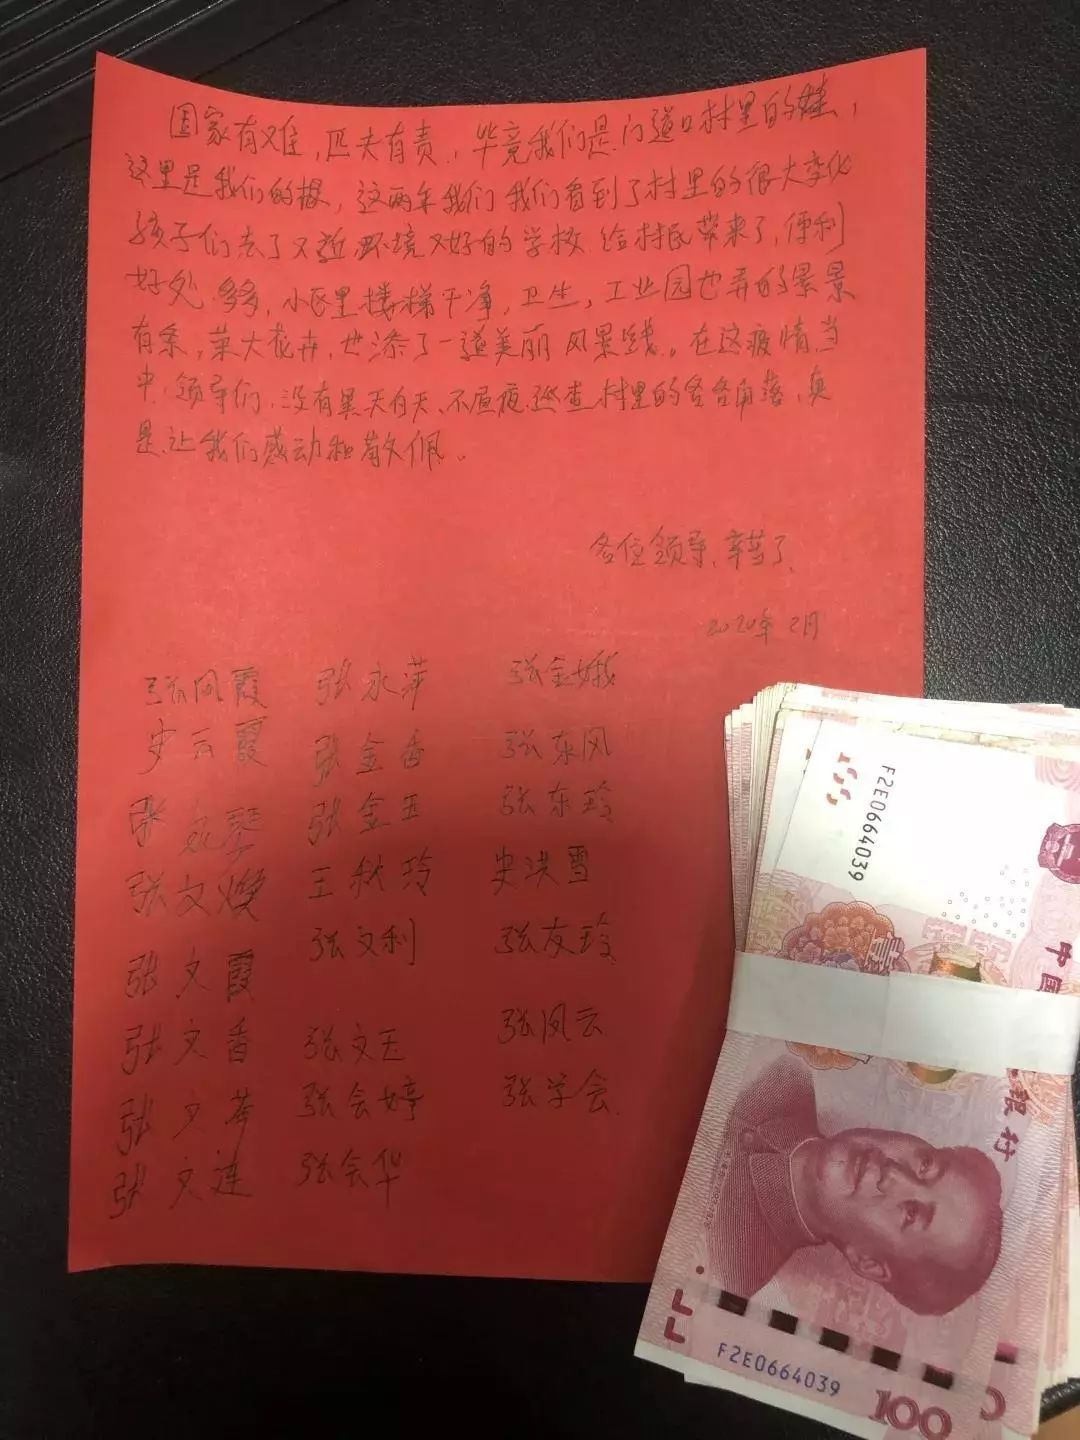 国家有难,匹夫有责,毕竟我们是门道口村里的娃,
这里是我们的根,这两年我们我们看到了村里的很大变化
孩子们去了又近环境又好的学校 给村民带来了,便利
好处.多多,小区里楼梯干净,卫生,工业园也弄的景景
有条,菜大花卉,也添了一道美丽风景线。在这疫情,当
中,领导们,没有黑天白天、不昼夜巡查村里的各各角落,真
是让我们感动和敬佩。
各位领导,辛苦了,
2020年2月
张凤霞 张永萍 张金娥
史云霞 张金香 张东风
张 琴 张金玉 张东玲
张文焕 王秋玲 史洪雪
张文利 张友玲
张文霞
张文香 张文玉 张凤云
张文 张会婷 张学会.
张文连 张会华
F2E0664039
中国
银行
F2E0664039
100